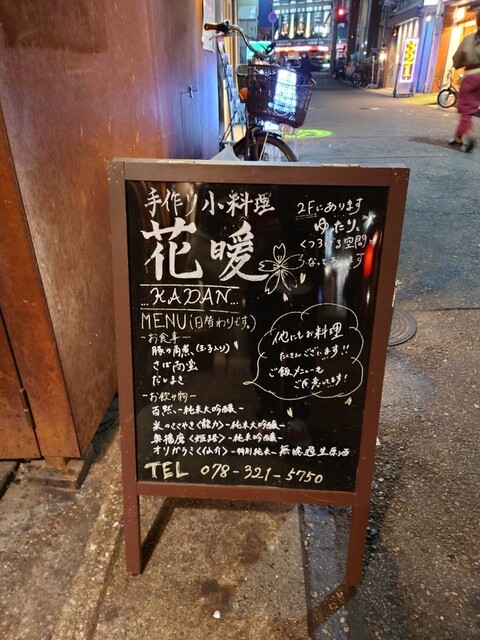 手作り小料理
花暖
KADAN
2Fにあります
ゆったりと
くつろげる空間と
なってます
MENU(日替わりです。)
-お食事-
豚の角煮、(玉子入り)
さば南蛮
だしまき
-お飲み物-
百然、-純米大吟醸-
米のささやき〈龍力〉-純米大吟醸-
奥播磨〈姫路〉-純米吟醸-
オリがらみ〈仙介〉-特別純米-無濾過生原酒
他にもお料理
たくさんございます!!
ご飯メニューも
ご用意してます!
TEL 078-321-5750